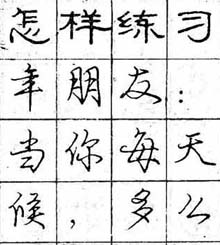 怎样练习
年朋友：
当你每天
候，多么